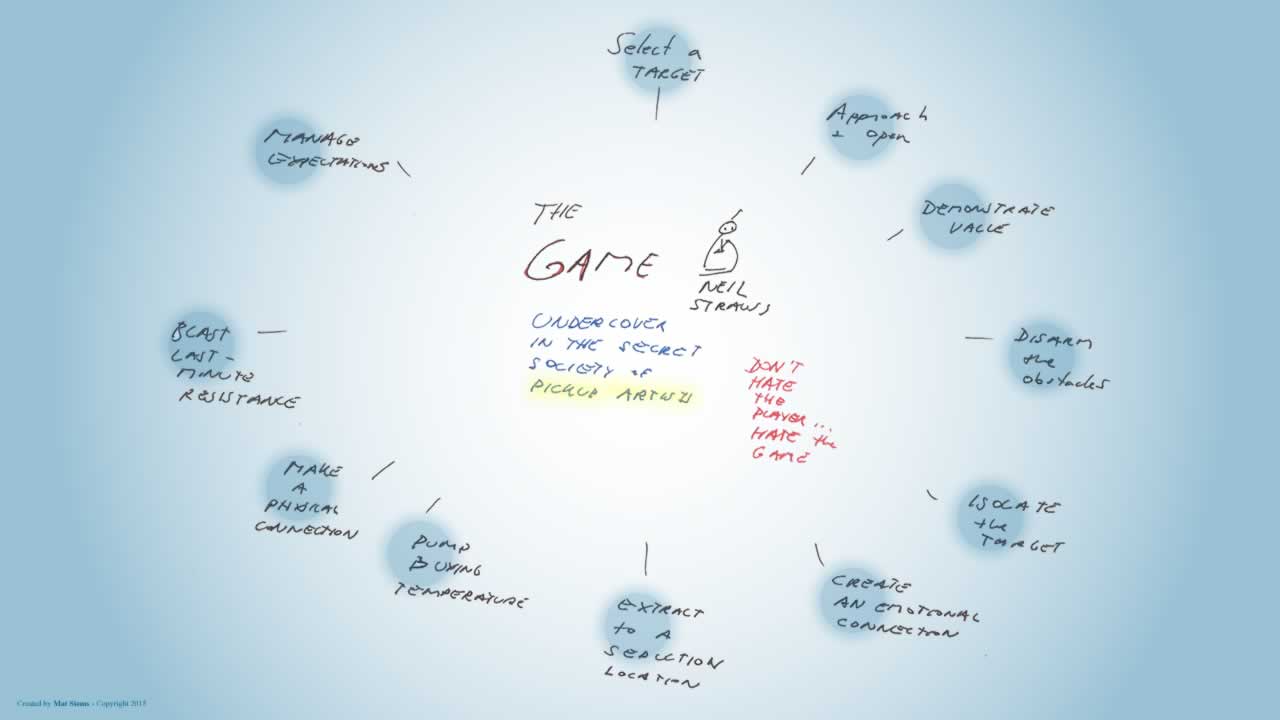 THE
GAME
NEIL
STRAUSS
UNDERCOVER
IN THE SECRET
SOCIETY of
PICKUP ARTISTS
DON'T
HATE
THE
PLAYER...
HATE the
GAME
Select a
TARGET
Approach
+ Open
DEMONSTRATE
VALUE
DISARM
the
obstacles
ISOLATE
the
TARGET
CREATE
AN EMOTIONAL
CONNECTION
EXTRACT
to A
SEDUCTION
LOCATION
PUMP
BUYING
TEMPERATURE
MAKE
A
PHYSICAL
CONNECTION
BLAST
LAST-
MINUTE
RESISTANCE
MANAGE
EXPECTATIONS
Created by Mat Siems - Copyright 2015